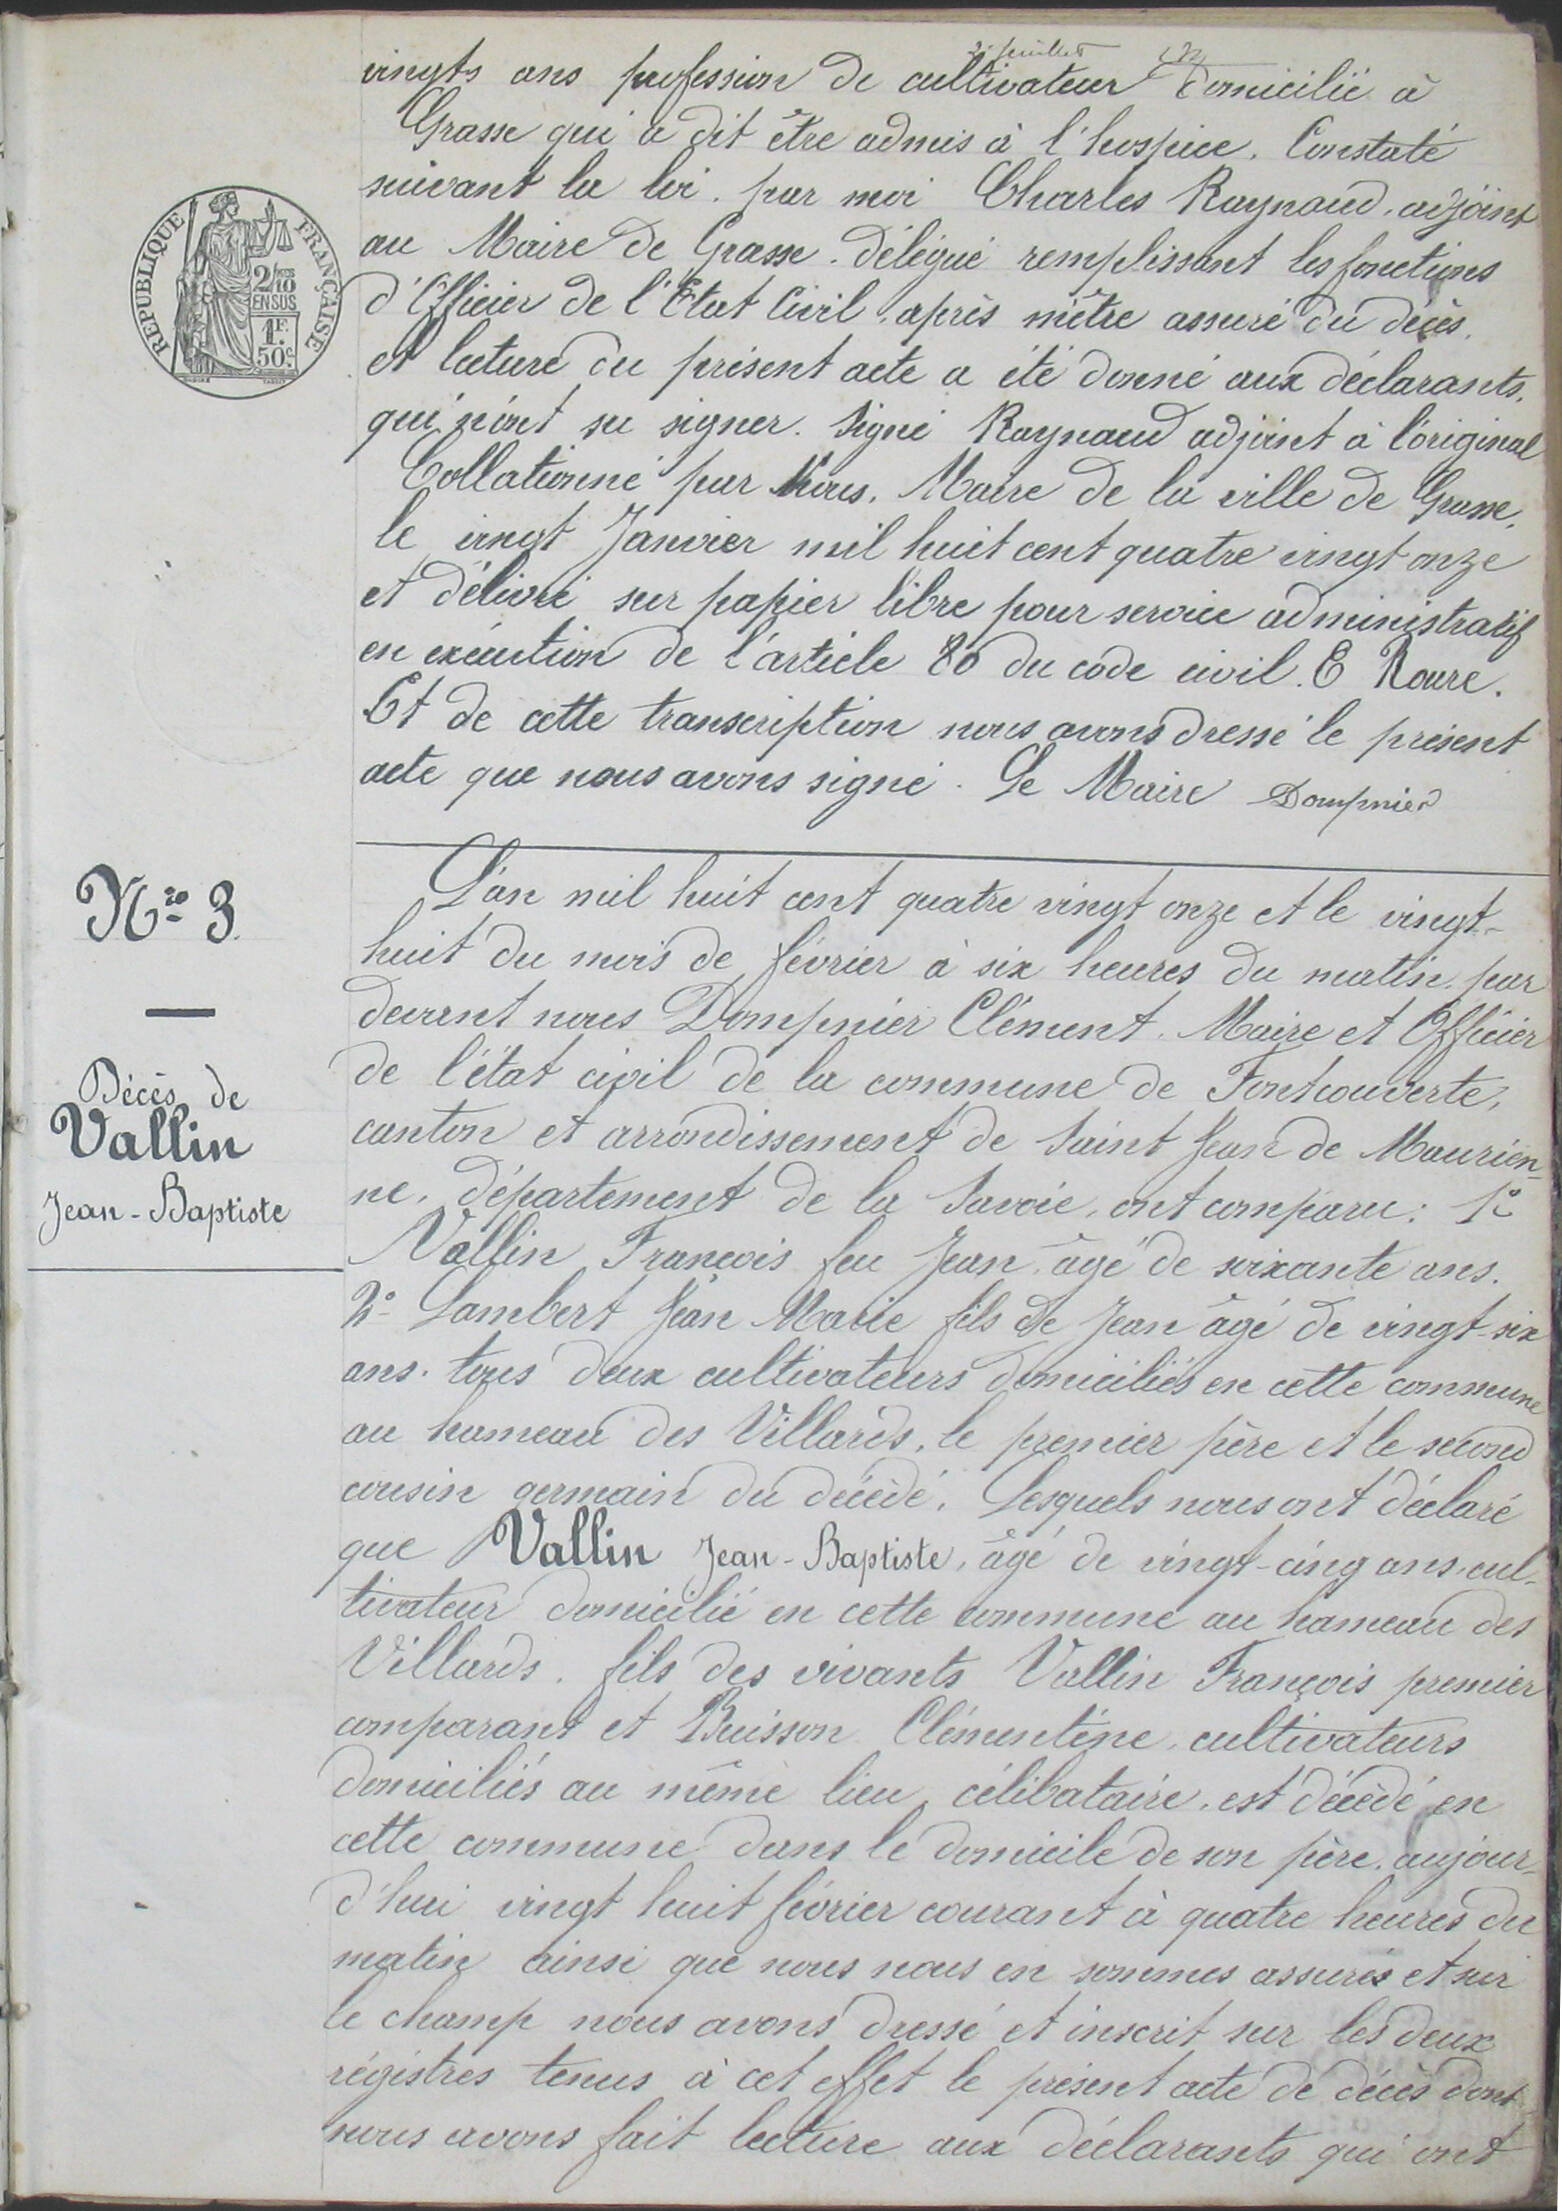 2e feuillet
vingts ans profession de cultivateur domicilié à
Grasse qui a dit être admis à l'hospice. Constaté
suivant la loi. par moi Charles Raynaud. adjoint
au Maire de Grasse. délégué remplissant les fonctions
d'Officier de l'Etat Civil. après m'être assuré du décès.
et lecture du présent acte a été donné aux déclarants.
qui n'ont su signer. Signé Raynaud adjoint à l'original
Collationné par Nous. Maire de la ville de Grasse.
le vingt Janvier mil huit cent quatre vingt onze
et délivré sur papier libre pour service administratif
en exécution de l'article 80 du code civil. E Roure.
Et de cette transcription nous avons dressé le présent
acte que nous avons signé. Le Maire Dompnier
REPUBLIQUE FRANÇAISE
2/10
EN SUS
1F.
50c.
Nro 3.
Décès de
Vallin
Jean-Baptiste
L'an mil huit cent quatre vingt onze et le vingt-
huit du mois de février à six heures du matin. par
devant nous Dompnier Clément. Maire et Officier
de l'état civil de la commune de Fontcouverte,
canton et arrondissement de Saint Jean de Maurien-
ne, département de la Savoie, ont comparu: 1º
Vallin François feu Jean âgé de soixante ans.
2º Lambert Jean Marie fils de Jean âgé de vingt-six
ans. tous deux cultivateurs domiciliés en cette commune
au hameau des Villards, le premier père et le second
cousin germain du décédé. Lesquels nous ont déclaré
que Vallin Jean-Baptiste, âgé de vingt-cinq ans, cul-
tivateur domicilié en cette commune au hameau des
Villards. fils des vivants Vallin François premier
comparant et Buisson Clémentine, cultivateurs
domiciliés au même lieu, célibataire, est décédé en
cette commune dans le domicile de son père. aujour-
d'hui vingt huit février courant à quatre heures du
matin ainsi que nous nous en sommes assurés et sur
le champ nous avons dressé et inscrit sur les deux
régistres tenus à cet effet le présent acte de décès dont
nous avons fait lecture aux déclarants qui ont